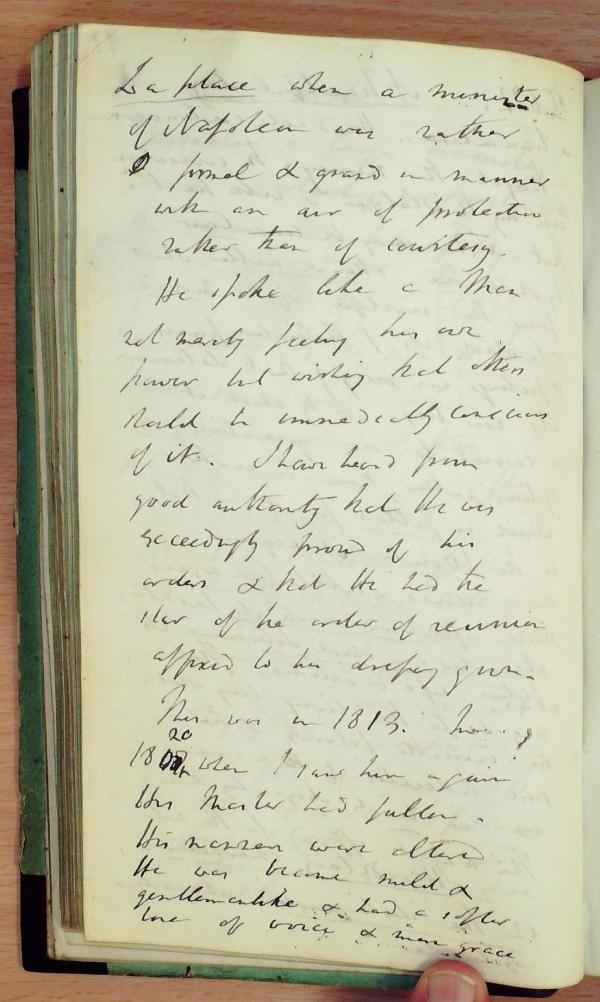 La place when a minister
of Napoleon was rather
formal & grand in manner
with an air of protection
rather than of courtesy.
He spoke like a Man
not merely feeling his own
power but wishing that others
should be immediately conscious
of it. I have heard from
good authority that He was
exceedingly proud of his
orders & that He had the
star of the order of reunion
affixed to his dressing gown.
This was in 1813. In
20
18 when I saw him again
His Master had fallen.
His manners were altered
He was become mild &
gentlemanlike & had a softer
tone of voice & more grace